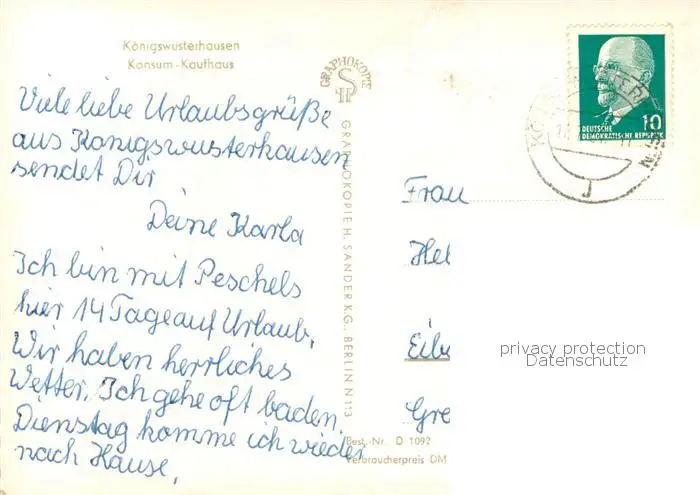 Königswusterhausen
Konsum-Kaufhaus
GRAPHOKOPIE
Viele liebe Urlaubsgrüße
aus Königswusterhausen
sendet Dir
Deine Karla
Ich bin mit Peschels
hier 14 Tage auf Urlaub.
Wir haben herrliches
Wetter. Ich gehe oft baden.
Dienstag komme ich wieder
nach Hause.
GRAPHOKOPIE H. SANDER K.G., BERLIN N 113
Best.-Nr. D 1092
Verbraucherpreis DM
10
DEUTSCHE
DEMOKRATISCHE REPUBLIK
Frau
Hel
Eib
Gre
privacy protection
Datenschutz